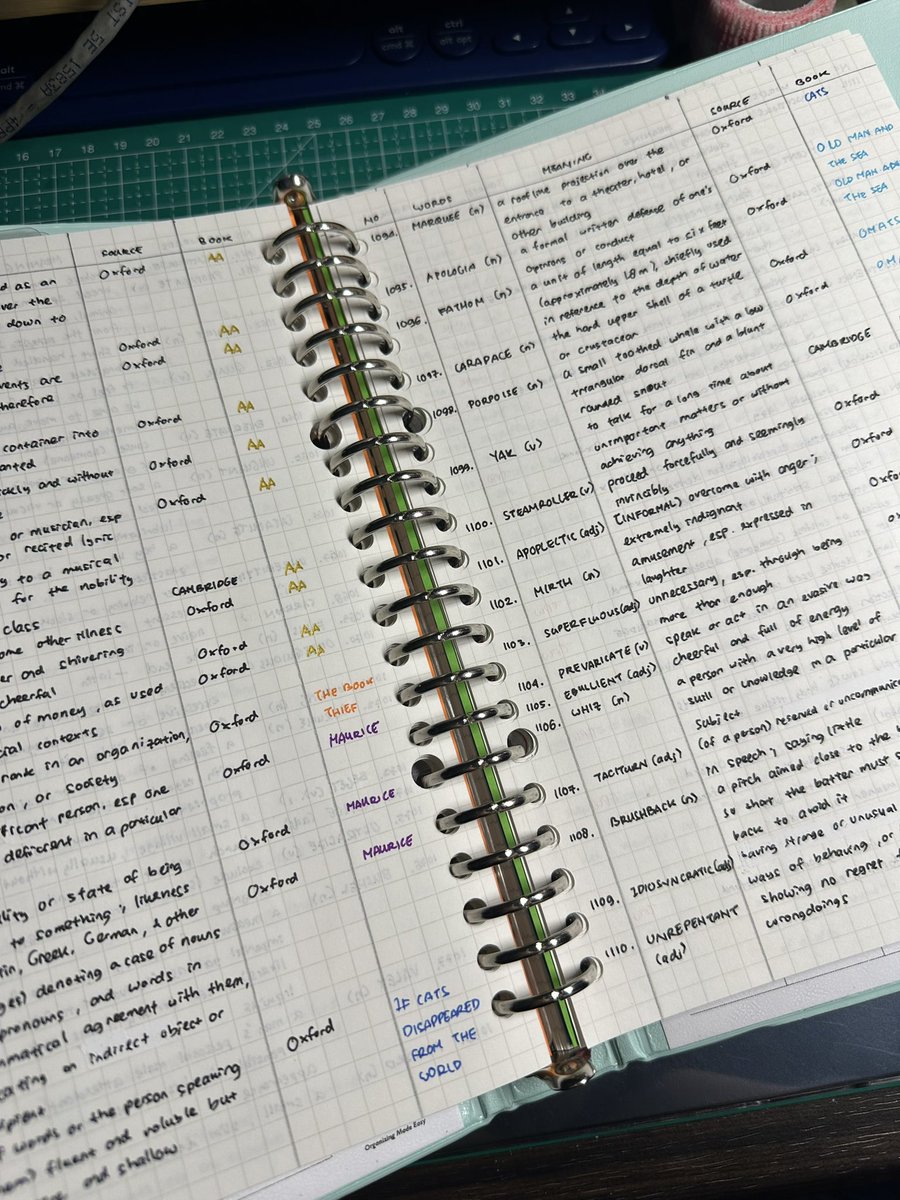 alt
cmd ⌘
ctrl
alt opt
alt
cmd ⌘
16 17 18 19 20 21 22 23 24 25 26 27 28 29 30 31 32 33 34
SOURCE
BOOK
d as an
Oxford
AA
ver the
down to
Oxford
AA
vents are
Oxford
AA
herefore
container into
Oxford
AA
anted
ickly and without
Oxford
AA
or musician, esp
Oxford
AA
or recited lyric
to a musical
for the nobility
class
CAMBRIDGE
AA
ome other illness
Oxford
AA
er and shivering
cheerful
Oxford
AA
of money, as used
Oxford
AA
cial contexts
rank in an organization,
Oxford
THE BOOK
THIEF
on, or society
ficant person, esp one
Oxford
MAURICE
deficient in a particular
MAURICE
lity or state of being
Oxford
to something; likeness
Oxford
MAURICE
in, Greek, German, & other
ges) denoting a case of nouns
pronouns, and words in
mmatical agreement with them,
cating an indirect object or
ipient
Oxford
IF CATS
DISAPPEARED
FROM THE
WORLD
f words or the person speaking
hem) fluent and voluble but
and shallow
Organizing Made Easy
NO
WORDS
MEANING
SOURCE
BOOK
1094.
MARQUEE (n)
a roofline projection over the
entrance to a theater, hotel, or
other building
Oxford
CATS
1095.
APOLOGIA (n)
a formal written defense of one's
opinions or conduct
Oxford
OLD MAN AND
THE SEA
1096.
FATHOM (n)
a unit of length equal to six feet
(approximately 1.8 m), chiefly used
in reference to the depth of water
Oxford
OLD MAN AND
THE SEA
1097.
CARAPACE (n)
the hard upper shell of a turtle
or crustacean
Oxford
OMATS
1098.
PORPOISE (n)
a small toothed whale with a low
triangular dorsal fin and a blunt
rounded snout
Oxford
1099.
YAK (v)
to talk for a long time about
unimportant matters or without
achieving anything
CAMBRIDGE
1100.
STEAMROLLER (v)
proceed forcefully and seemingly
invincibly
Oxford
1101.
APOPLECTIC (adj)
(INFORMAL) overcome with anger;
extremely indignant
Oxford
1102.
MIRTH (n)
amusement, esp. expressed in
laughter
1103.
SUPERFLUOUS (adj)
unnecessary, esp. through being
more than enough
1104.
PREVARICATE (v)
speak or act in an evasive way
1105.
EBULLIENT (adj)
cheerful and full of energy
1106.
WHIZ (n)
a person with a very high level of
skill or knowledge in a particular
subject
1107.
TACITURN (adj)
(of a person) reserved or uncommunic
in speech; saying little
1108.
BRUSHBACK (n)
a pitch aimed close to the b
so that the batter must s
back to avoid it
1109.
IDIOSYNCRATIC (adj)
having strange or unusual
ways of behaving, or
1110.
UNREPENTANT
(adj)
showing no regret f
wrongdoings